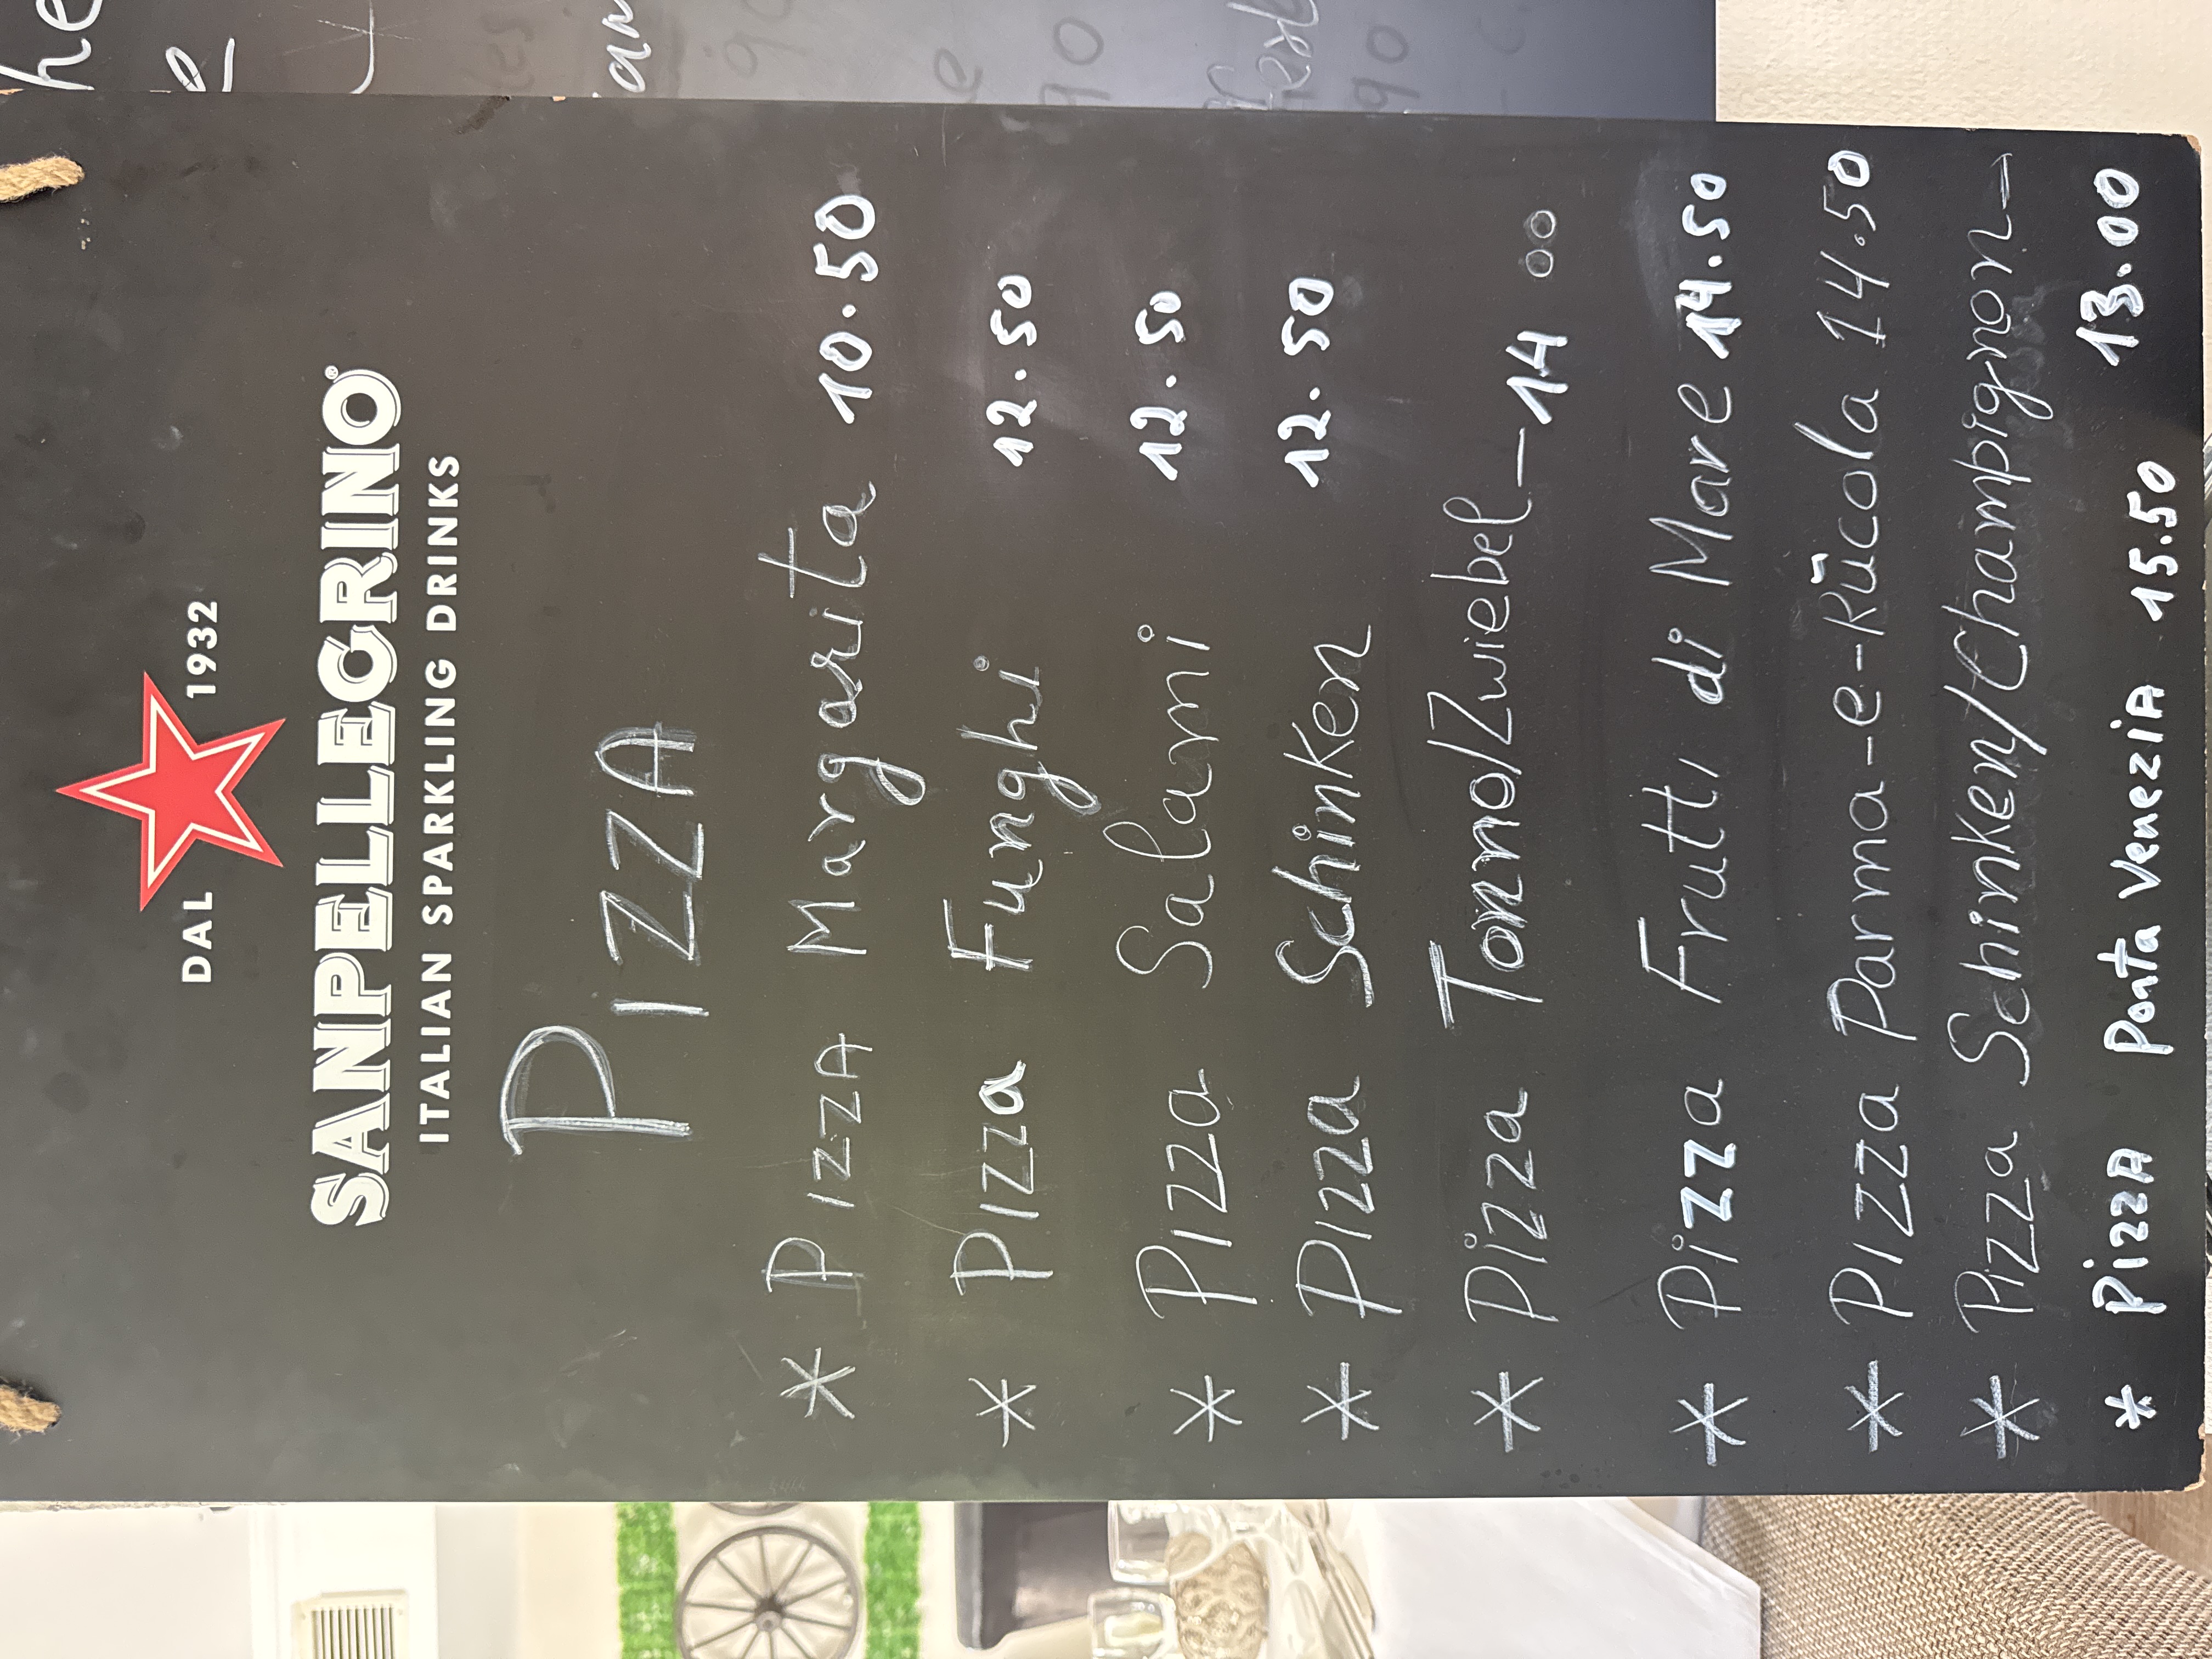 DAL 1932
SANPELLEGRINO®
ITALIAN SPARKLING DRINKS
PIZZA
* PIZZA Margarita 10.50
* Pizza Funghi 12.50
* Pizza Salami 12.50
* Pizza Schinken 12.50
* Pizza Tonno/Zwiebel - 14 00
* Pizza Frutti di Mare 14.50
* Pizza Parma-e-Rūcola 14.50
* Pizza Schinken/Champignon →
13.00
* PizzA Ponta VeneziA 15.50